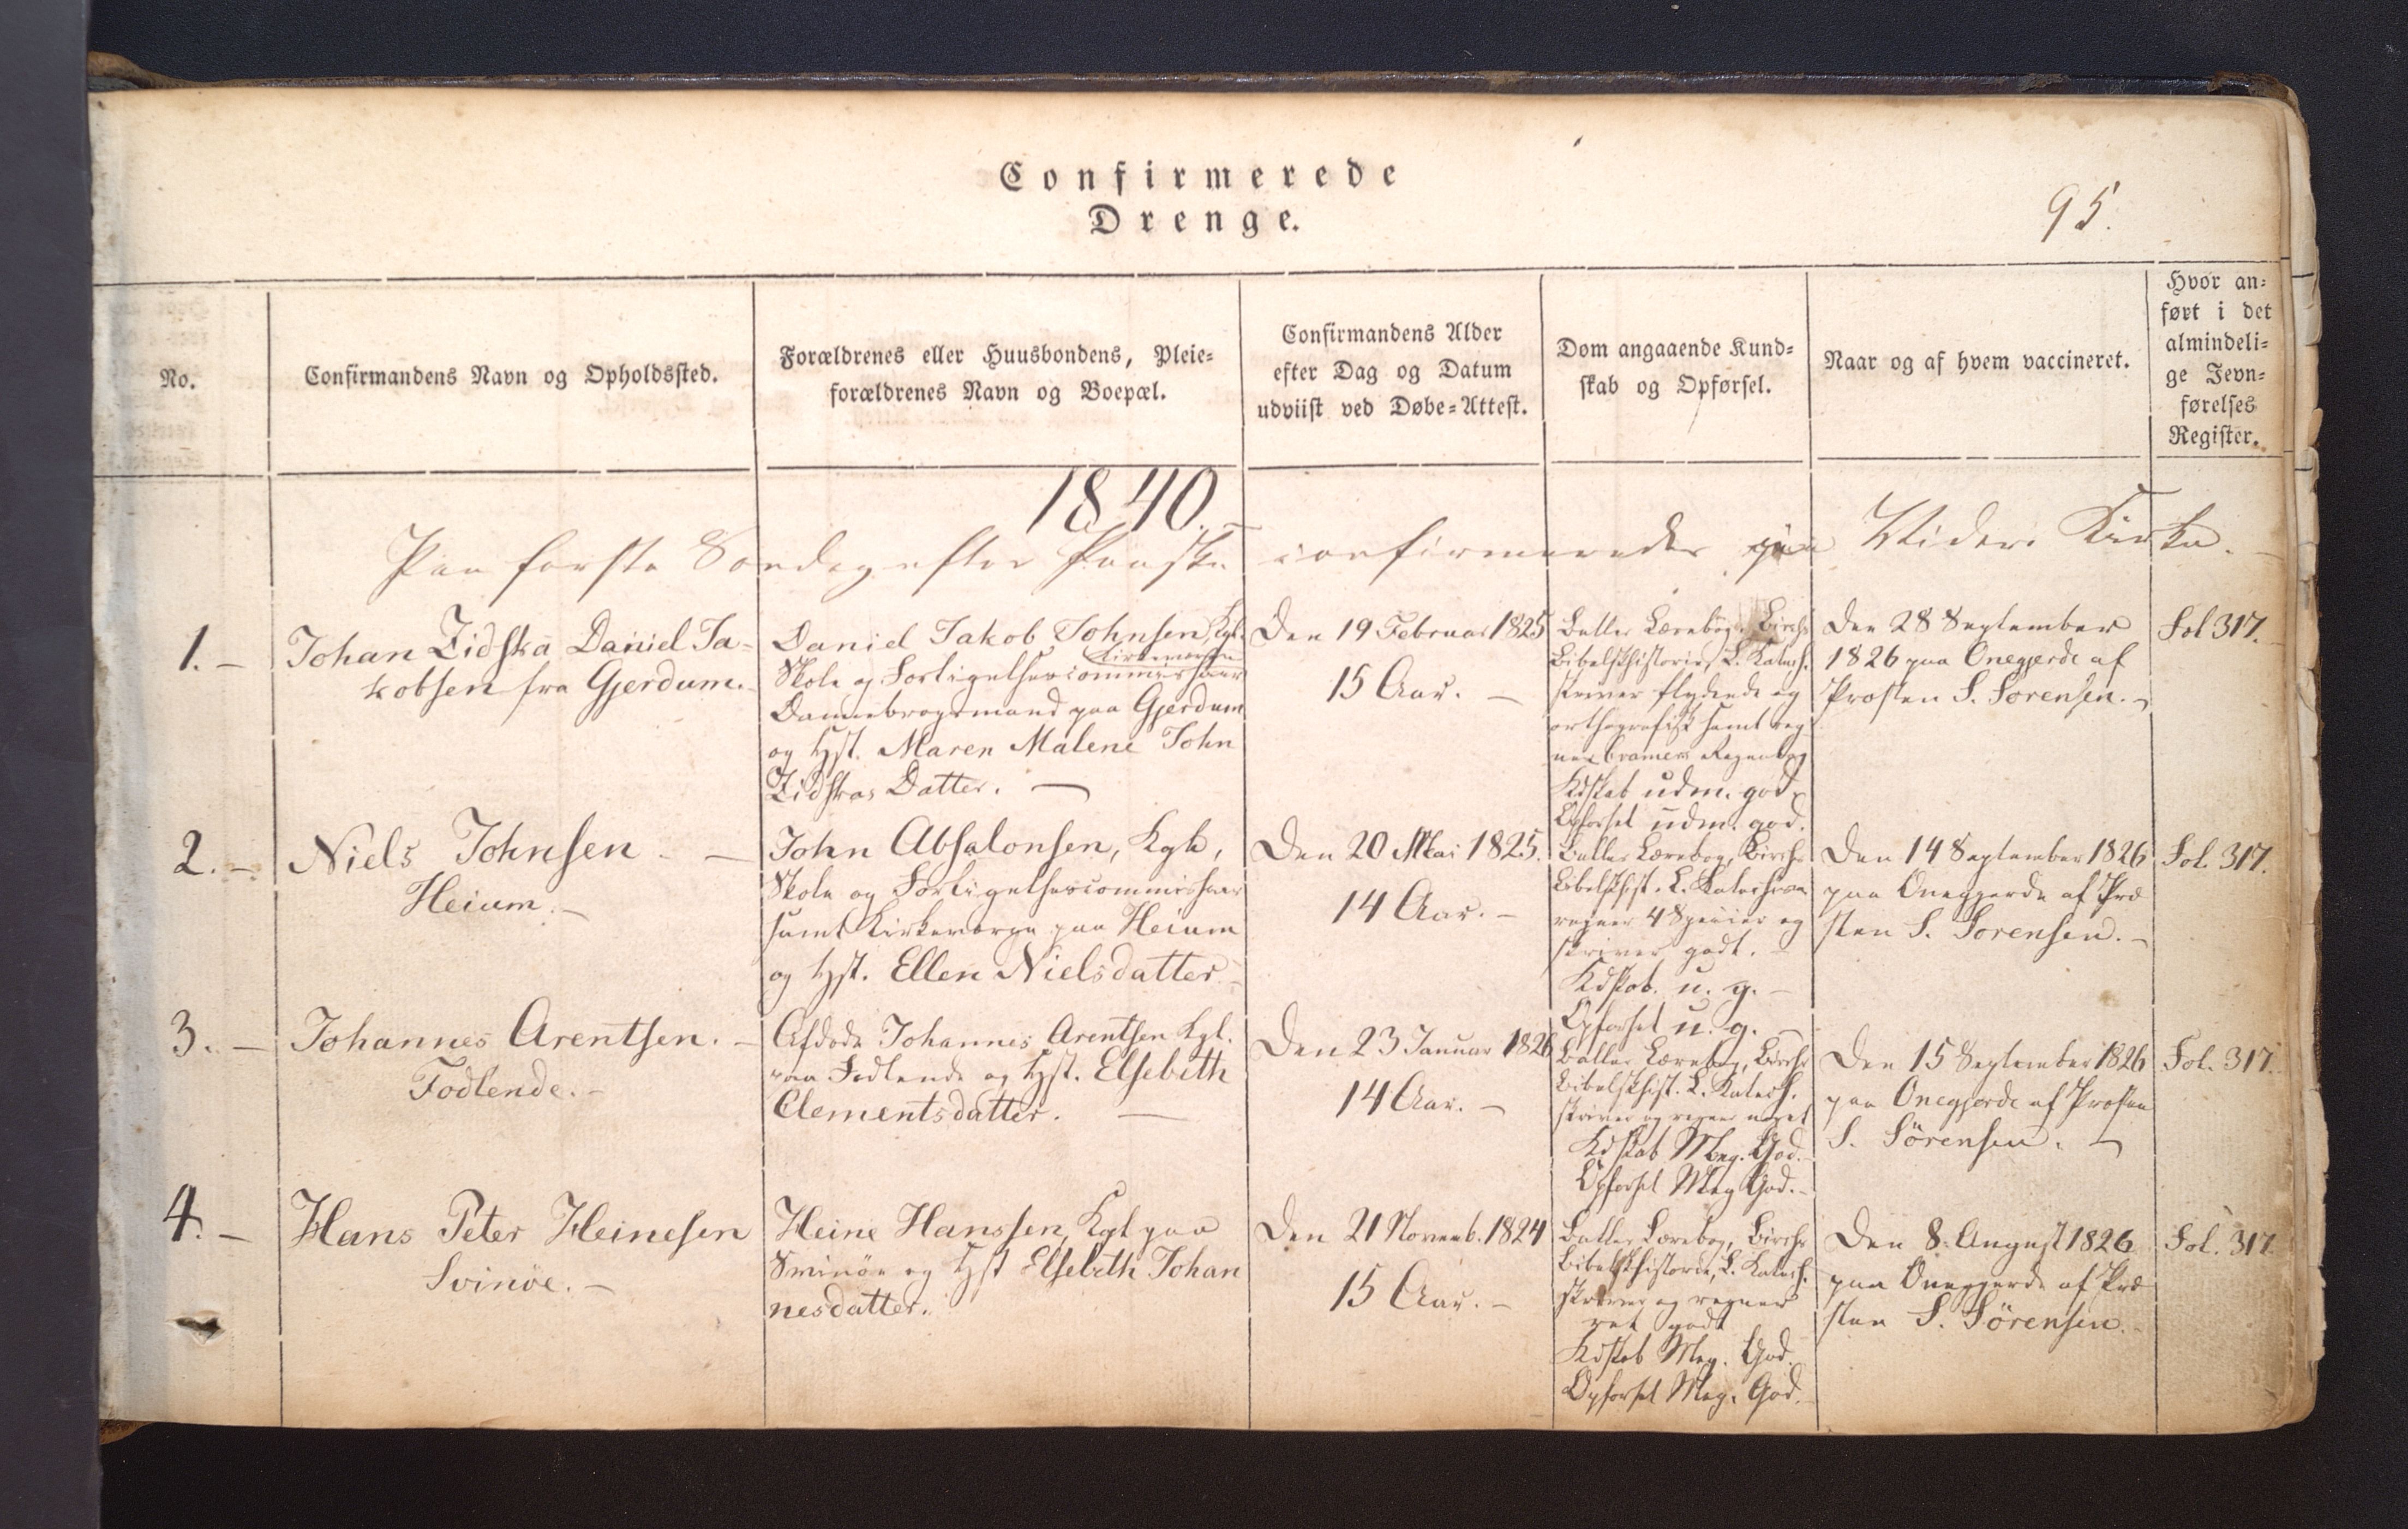 Confirmerede
Drenge.
95.
No.
Confirmandens Navn og Opholdssted.
Forældrenes eller Huusbondens, Pleie-
forældrenes Navn og Boepæl.
Confirmandens Alder
efter Dag og Datum
udviist ved Døbe-Attest.
Dom angaaende Kund-
skab og Opførsel.
Naar og af hvem vaccineret.
Hvor an-
ført i det
almindeli-
ge Jevn-
førelses
Register.
1840.
Paa første Søndag efter Paaske confirmerede paa Viderø Kirke.
1.
Johan Zidska Daniel Ja-
kobsen fra Gjerdum.
Daniel Jakob Johnsen, Kgb.
Kirkeværge
Skole og Forligelsescommissair
Dannebrogsmand paa Gjerdum
og Hst. Maren Malene John
Zidskas Datter.
Den 19 Februar 1825
15 Aar.
Balles Lærebog, Birchs
Bibelskhistorie, L. Katech.
skriver flydende og
orthografisk samt reg
ner Cramers Regnebog
Kdskab udm. god.
Opførsel udm. god.
Den 28 September
1826 paa Onegjerde af
Provsten S. Sørensen.
Fol 317.
2.
Niels Johnsen
Heium.
John Absalonsen, Kgb,
Skole og Forligelsescommissair
samt Kirkeværge paa Heium
og Hst. Ellen Nielsdatter
Den 20 Mai 1825.
14 Aar.
Balles Lærebog, Birchs
Bibelskhist. L. Katechism
regner 4 Specier og
skriver godt.
Kdskab. u. g.
Opførsel u. g.
Den 14 September 1826
paa Onegjerde af Pro
sten S. Sørensen.
Fol. 317.
3.
Johannes Arentsen.
Fodlende.
Afdøde Johannes Arentsen Kgb.
paa Fodlende og Hst. Elsebeth
Clementsdatter.
Den 23 Januar 1826
14 Aar.
Balles Lærebog, Birchs
Bibelskhist. L. Katech.
skriver og regner noget
Kdskab Meg. God.
Opførsel Meg God.
Den 15 September 1826
paa Onegjerde af Prosten
S. Sörensen.
Fol. 317.
4.
Hans Peter Heinesen
Svinöe.
Heine Hanssen, Kgb paa
Svinöe og Hst Elsebeth Johan
nesdatter.
Den 21 Novemb. 1824
15 Aar.
Balles Lærebog, Birchs
Bibelskhistorie, L. Katech.
skriver og regner
ret godt
Kdskab Meg. God.
Opførsel Meg. God.
Den 8. August 1826
paa Onegjerde af Pro
sten S. Sörensen.
Fol. 317.